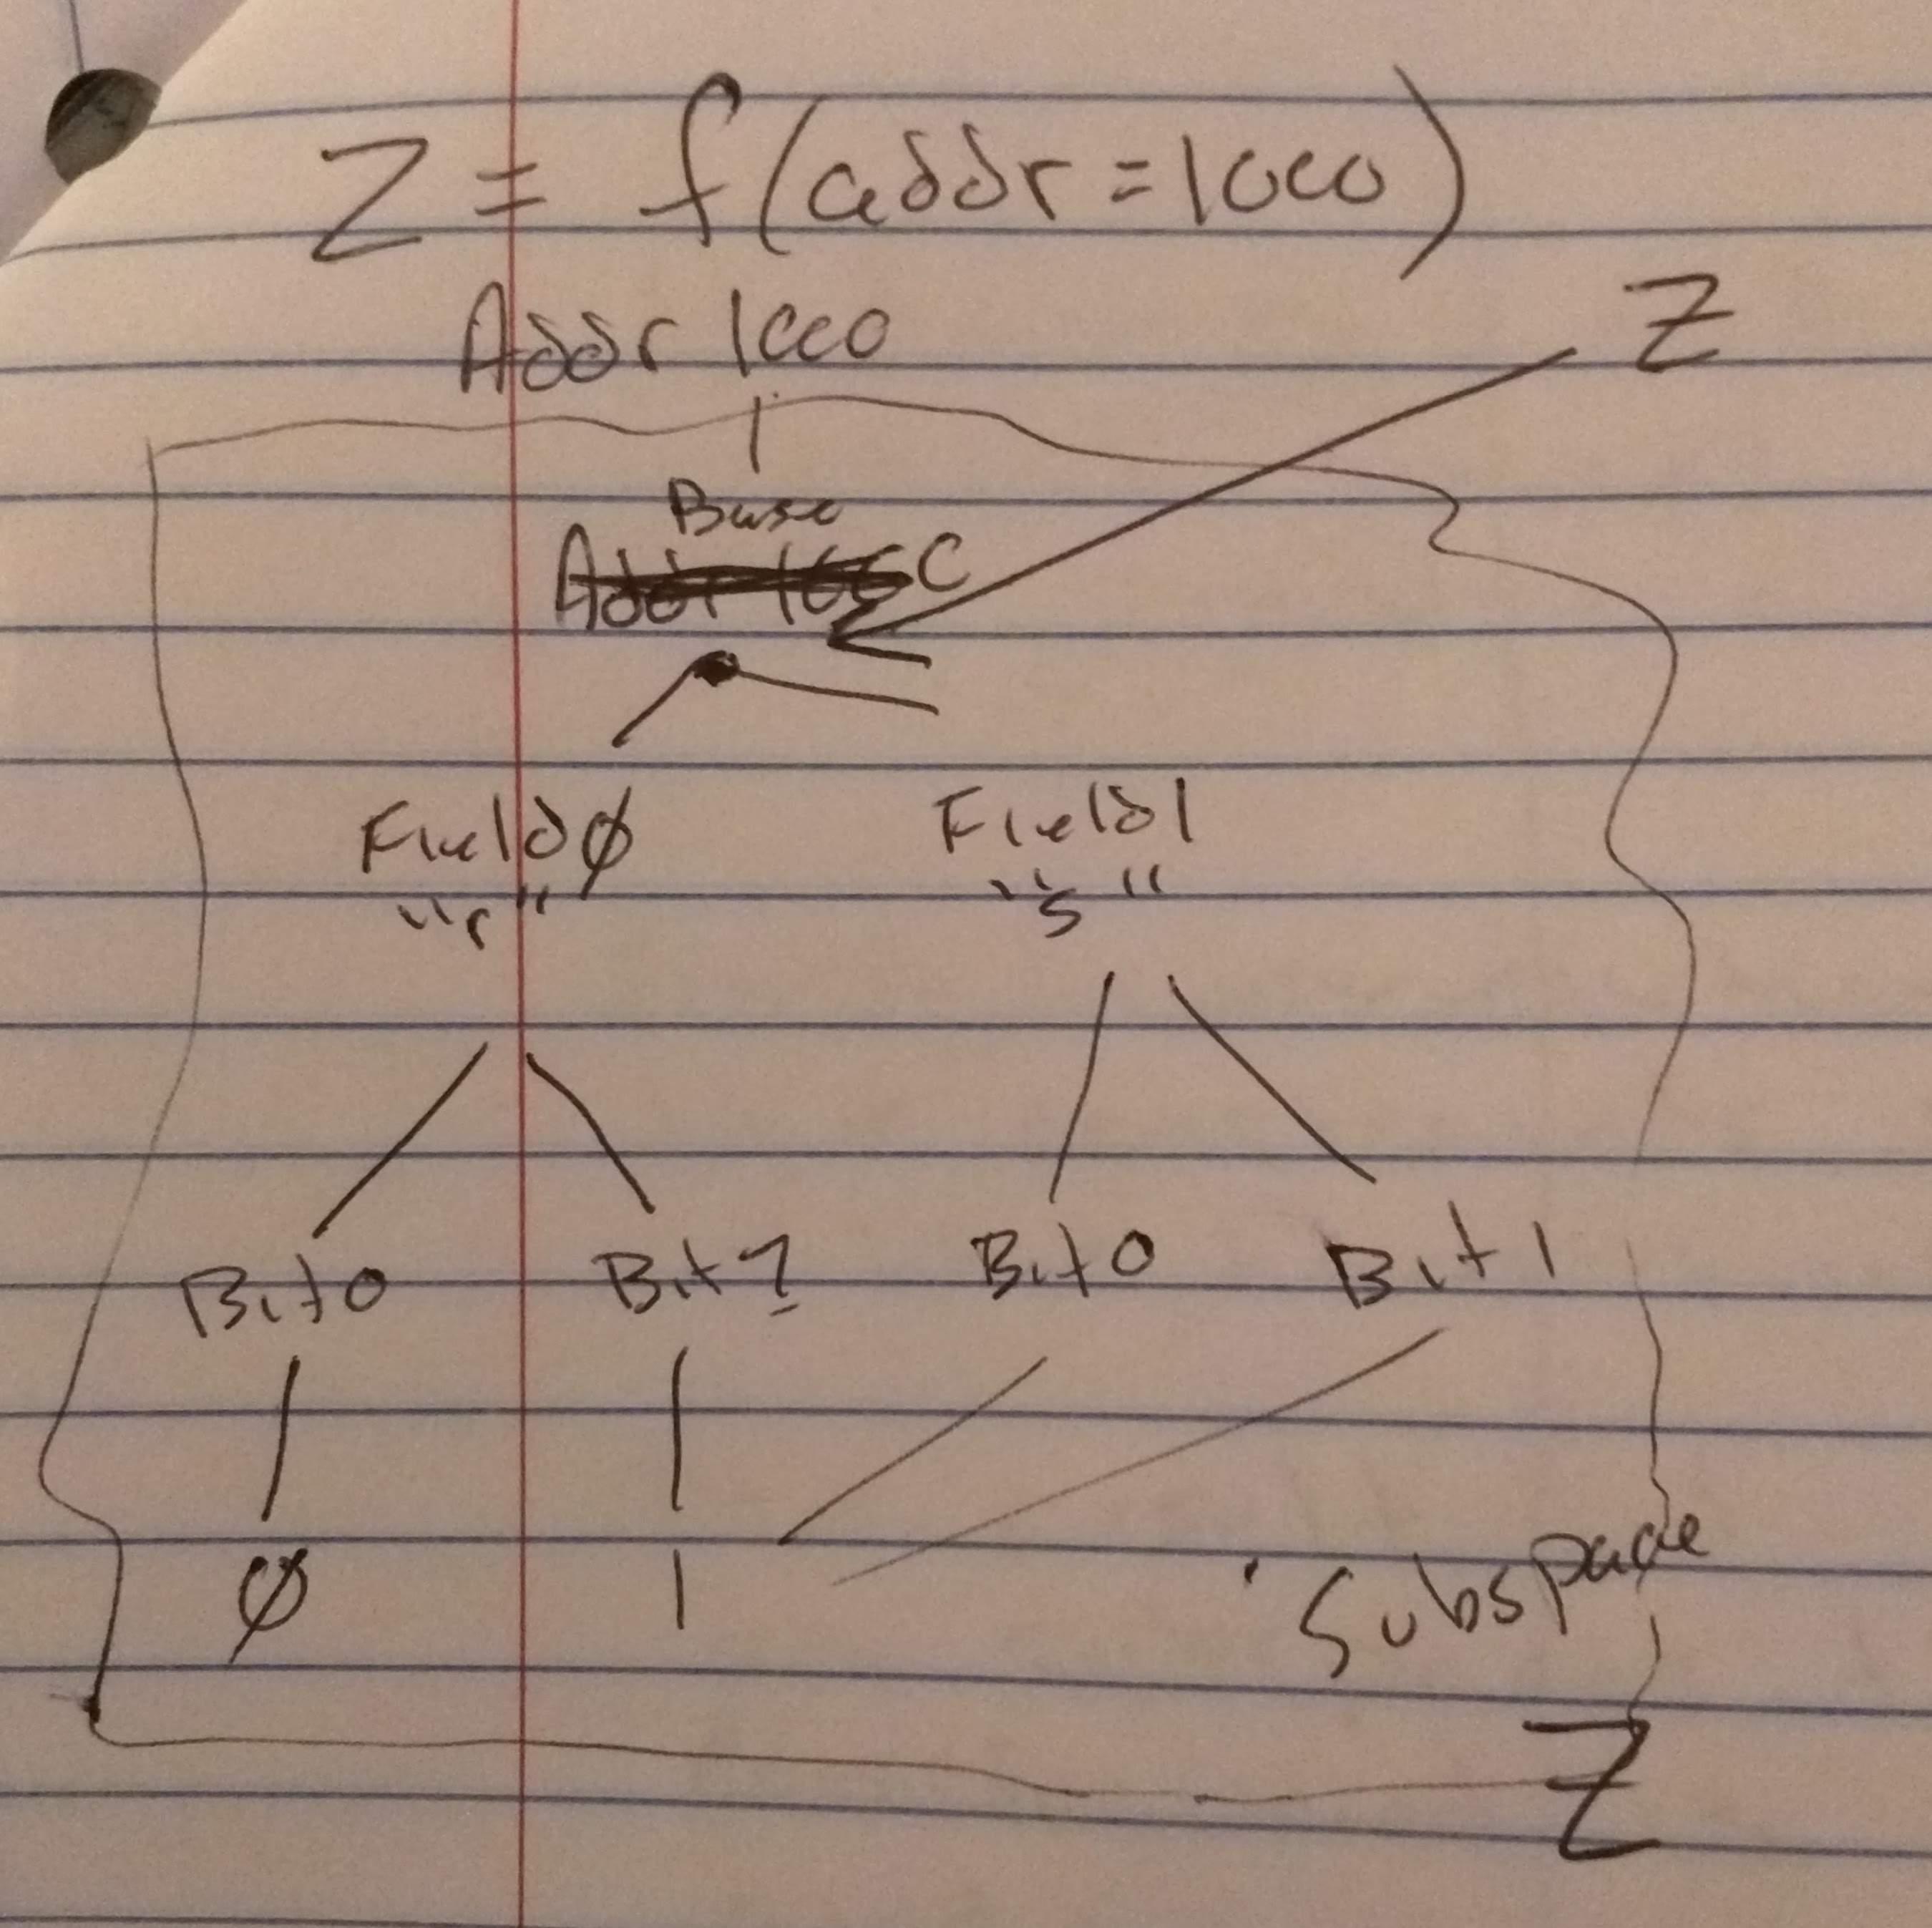 Z = f(addr=1000)
Addr 1000
Z
Base
Addr 1000
Fieldø Field1
"r" "s"
Bit0 Bit? Bit0 Bit1
ø 1
Subspace
Z